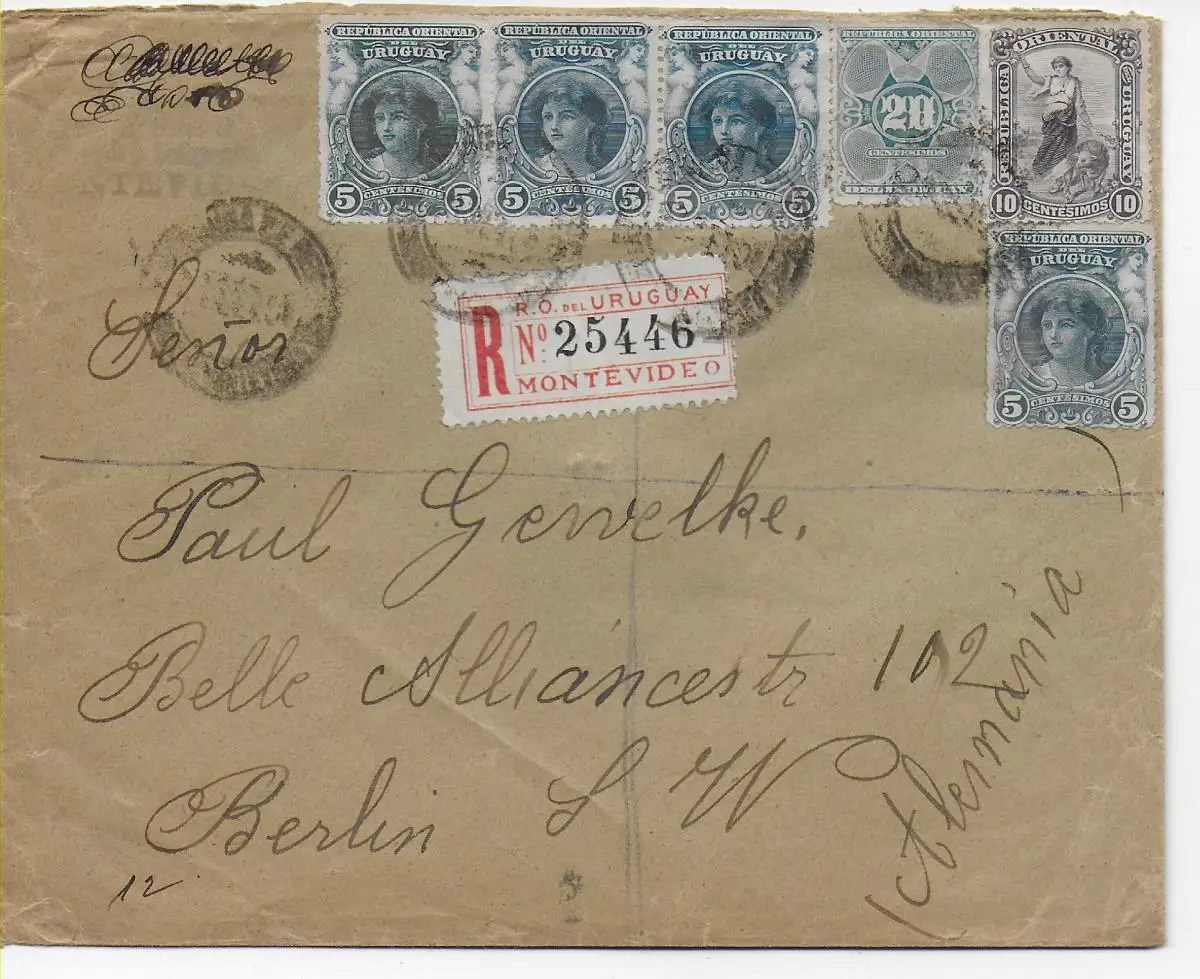 REPÚBLICA ORIENTAL
DEL
URUGUAY
5 CENTÉSIMOS 5
REPÚBLICA ORIENTAL
DEL
URUGUAY
5 CENTÉSIMOS 5
REPÚBLICA ORIENTAL
DEL
URUGUAY
5 CENTÉSIMOS 5
REPÚBLICA ORIENTAL
20
CENTÉSIMOS
DEL URUGUAY
REPÚBLICA ORIENTAL DEL URUGUAY
10 CENTÉSIMOS 10
REPÚBLICA ORIENTAL
DEL
URUGUAY
5 CENTÉSIMOS 5
R
R.O. DEL URUGUAY
Nº: 25446
MONTEVIDEO
Señor
Paul Gewelke.
Belle Alliáncestr 102
Berlin S W
Alemánia
12